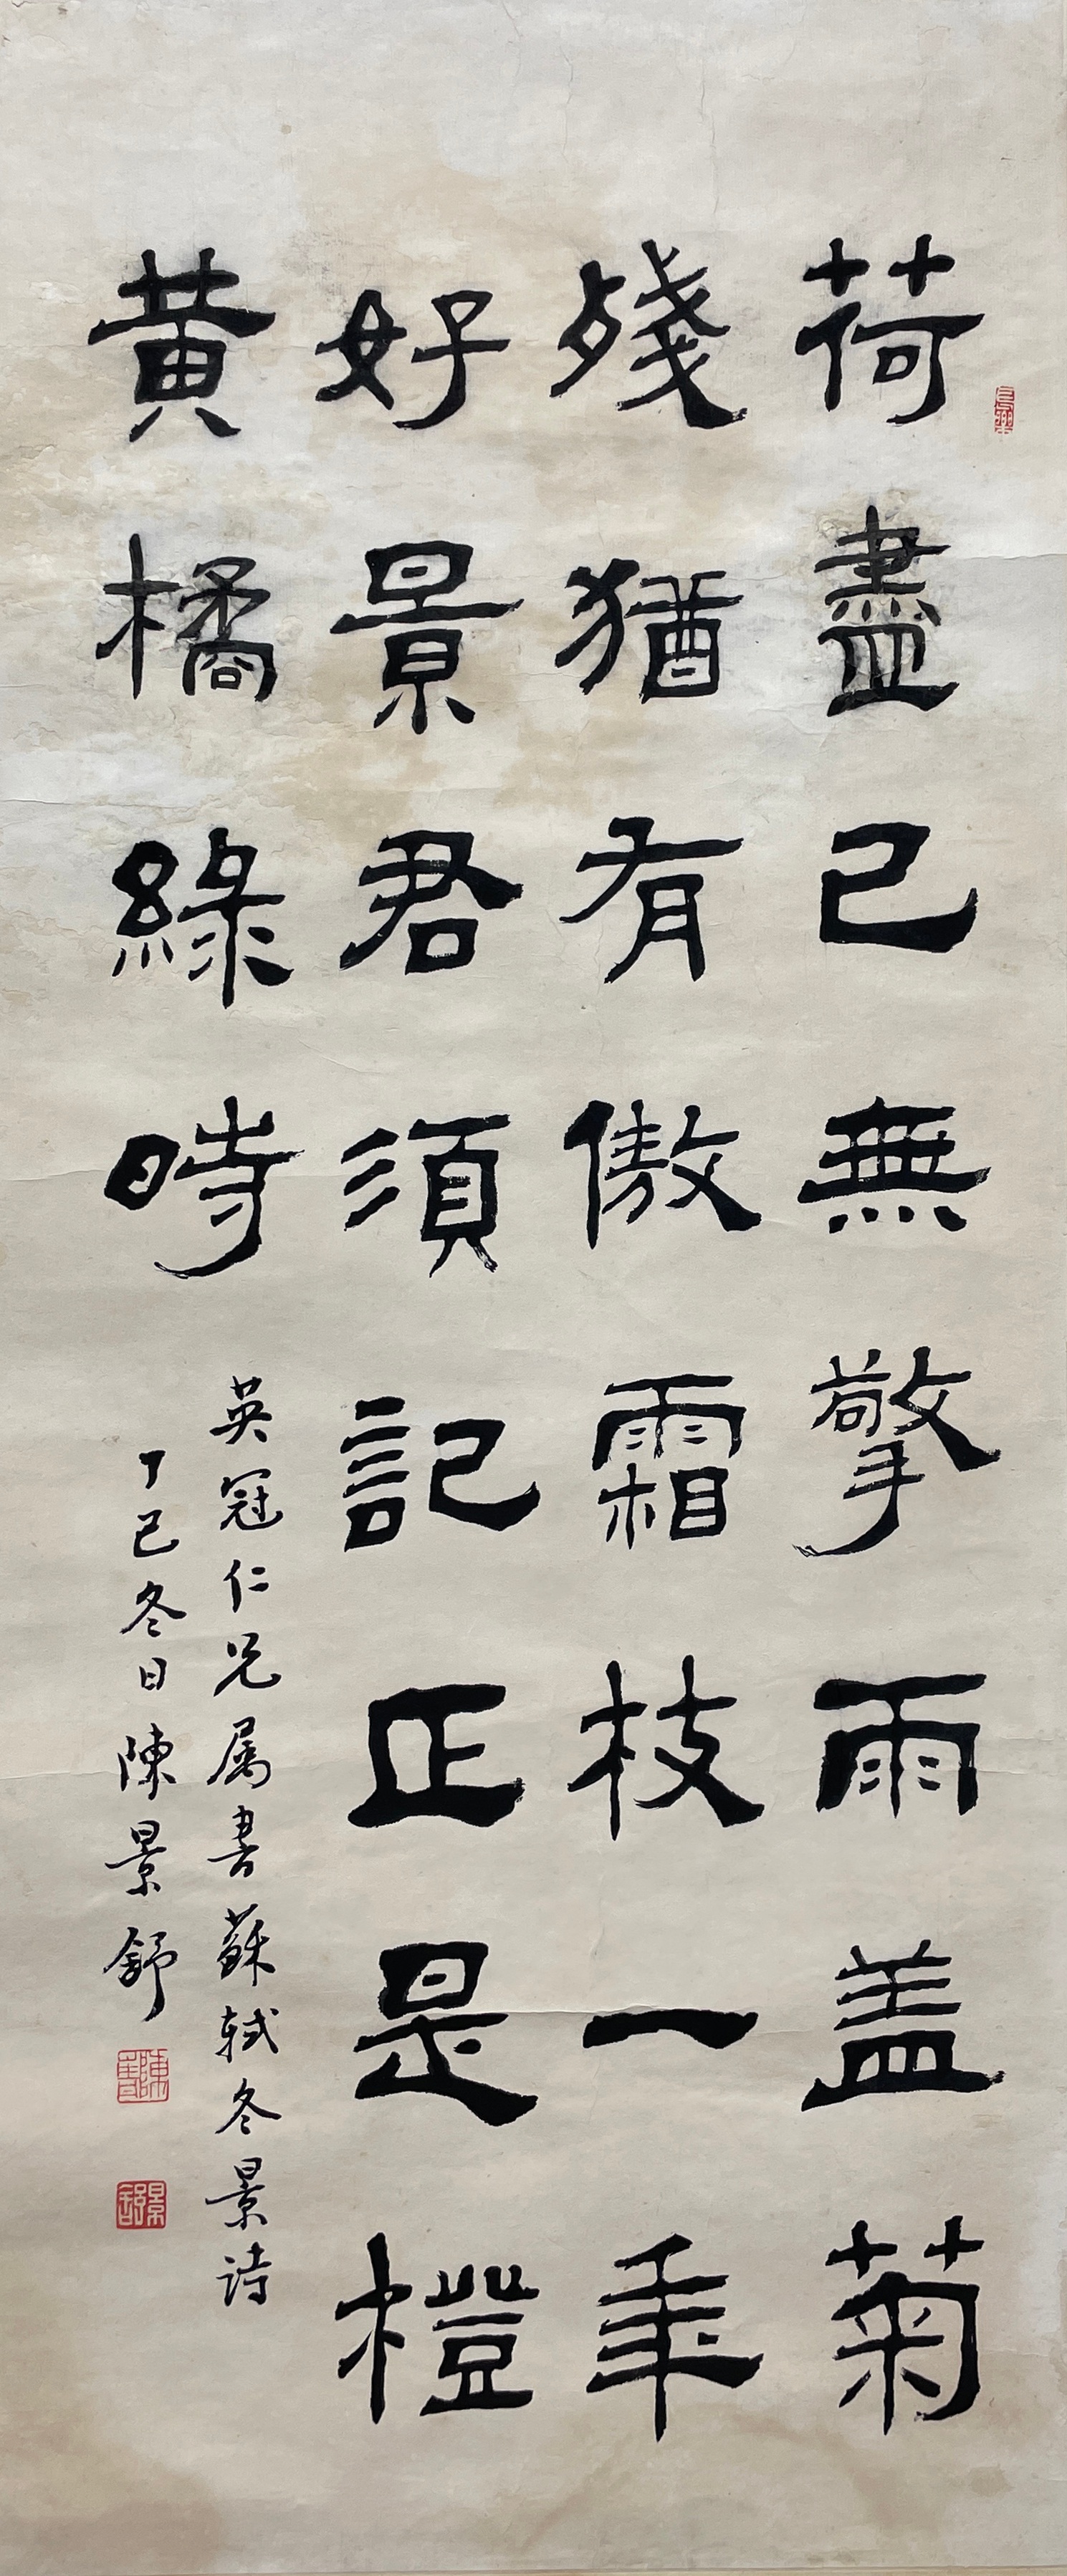 荷盡已無擎雨盖菊
殘猶有傲霜枝一年
好景君須記正是橙
黄橘綠時
英冠仁兄属書蘇軾冬景詩
丁巳冬日陳景舒
景舒